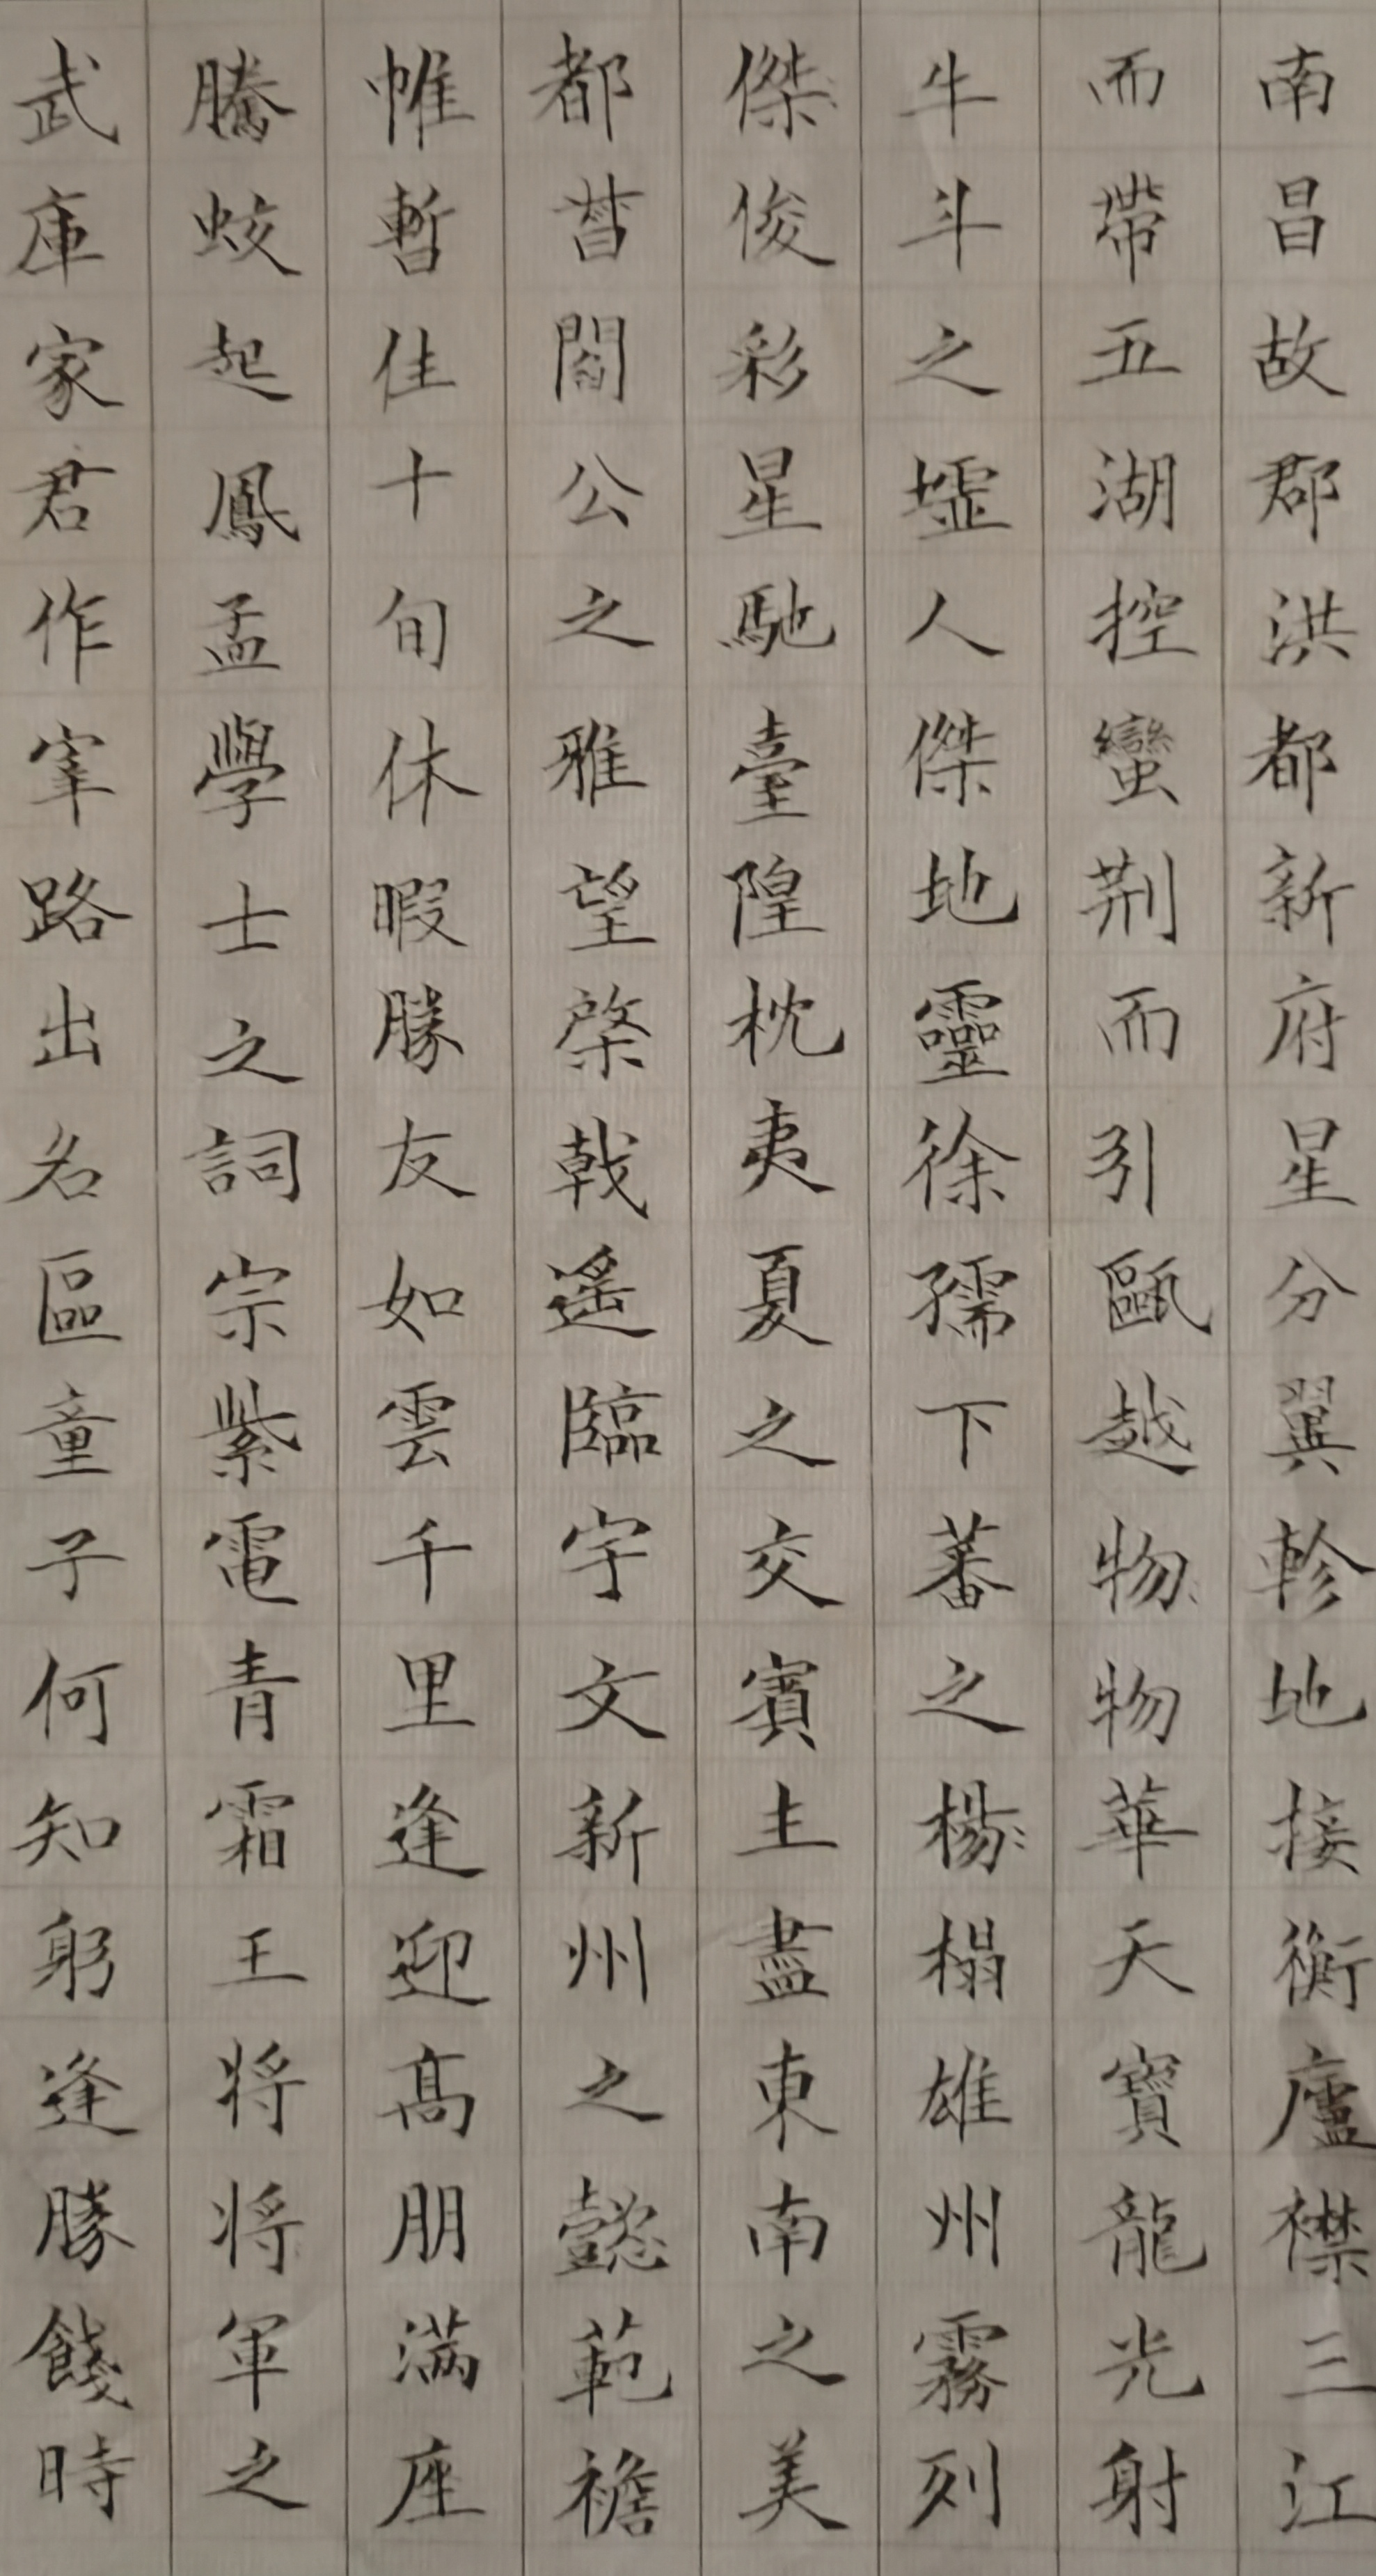 南昌故郡洪都新府星分翼軫地接衡廬襟三江
而帶五湖控蠻荆而引甌越物物華天寶龍光射
牛斗之墟人傑地靈徐孺下蕃之楊榻雄州霧列
傑俊彩星馳臺隍枕夷夏之交賓主盡東南之美
都督閻公之雅望棨戟遥臨宇文新州之懿範襜
帷暫住十旬休暇勝友如雲千里逢迎髙朋满座
騰蛟起鳳孟學士之詞宗紫電青霜王将将軍之
武庫家君作宰路出名區童子何知躬逢勝餞時